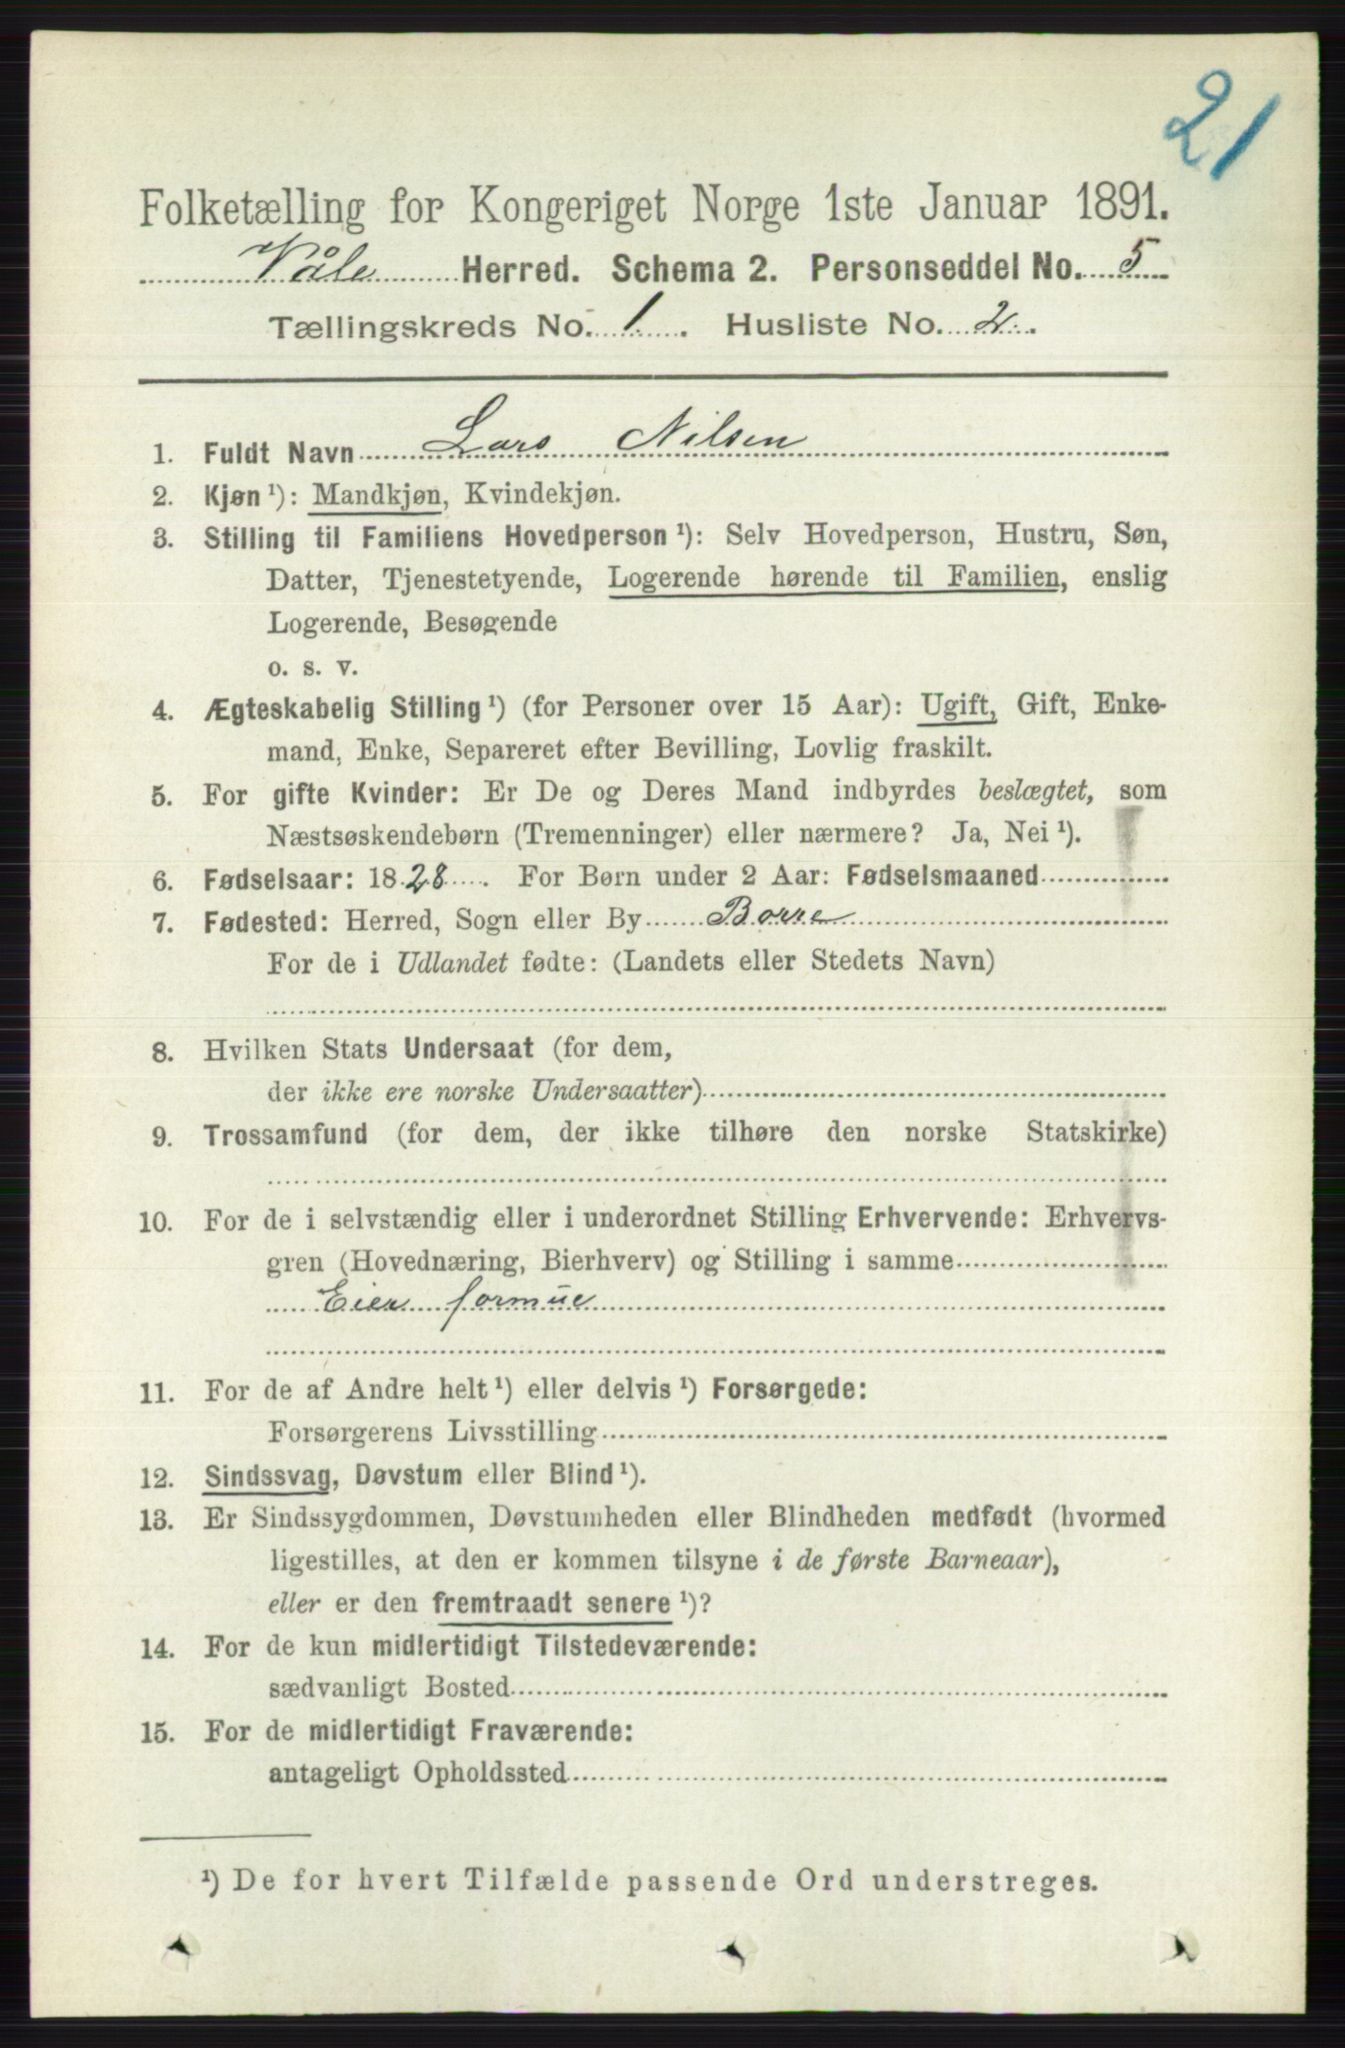 21
Folketælling for Kongeriget Norge 1ste Januar 1891.
Våle Herred. Schema 2. Personseddel No. 5
Tællingskreds No. 1. Husliste No. 2.
1. Fuldt Navn Lars Nilsen
2. Kjøn ¹): Mandkjøn, Kvindekjøn.
3. Stilling til Familiens Hovedperson ¹): Selv Hovedperson, Hustru, Søn,
Datter, Tjenestetyende, Logerende hørende til Familien, enslig
Logerende, Besøgende
o. s. v.
4. Ægteskabelig Stilling ¹) (for Personer over 15 Aar): Ugift, Gift, Enke-
mand, Enke, Separeret efter Bevilling, Lovlig fraskilt.
5. For gifte Kvinder: Er De og Deres Mand indbyrdes beslægtet, som
Næstsøskendebørn (Tremenninger) eller nærmere? Ja, Nei ¹).
6. Fødselsaar: 1828. For Børn under 2 Aar: Fødselsmaaned
7. Fødested: Herred, Sogn eller By Borre
For de i Udlandet fødte: (Landets eller Stedets Navn)
8. Hvilken Stats Undersaat (for dem,
der ikke ere norske Undersaatter)
9. Trossamfund (for dem, der ikke tilhøre den norske Statskirke)
10. For de i selvstændig eller i underordnet Stilling Erhvervende: Erhvervs-
gren (Hovednæring, Bierhverv) og Stilling i samme
Eier formue
11. For de af Andre helt ¹) eller delvis ¹) Forsørgede:
Forsørgerens Livsstilling
12. Sindssvag, Døvstum eller Blind ¹).
13. Er Sindssygdommen, Døvstumheden eller Blindheden medfødt (hvormed
ligestilles, at den er kommen tilsyne i de første Barneaar),
eller er den fremtraadt senere ¹)?
14. For de kun midlertidigt Tilstedeværende:
sædvanligt Bosted
15. For de midlertidigt Fraværende:
antageligt Opholdssted
¹) De for hvert Tilfælde passende Ord understreges.